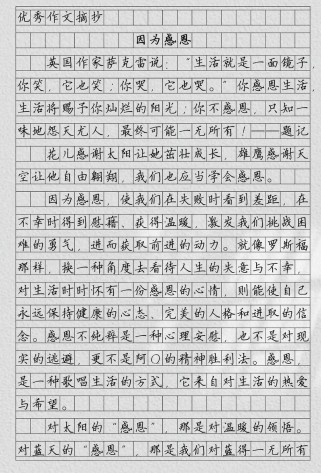 优秀作文摘抄
因为感恩
英国作家萨克雷说：“生活就是一面镜子，
你笑，它也笑；你哭，它也哭。”你感恩生活，
生活将赐予你灿烂的阳光；你不感恩，只知一
味地怨天尤人，最终可能一无所有！——题记
花儿感谢太阳让她茁壮成长，雄鹰感谢天
空让他自由翱翔，我们也应当学会感恩。
因为感恩，使我们在失败时看到差距，在
不幸时得到慰籍、获得温暖，激发我们挑战困
难的勇气，进而获取前进的动力。就像罗斯福
那样，换一种角度去看待人生的失意与不幸，
对生活时时怀有一份感恩的心情，则能使自己
永远保持健康的心态、完美的人格和进取的信
念。感恩不纯粹是一种心理安慰，也不是对现
实的逃避，更不是阿〇的精神胜利法。感恩，
是一种歌唱生活的方式，它来自对生活的热爱
与希望。
对太阳的“感恩”，那是对温暖的领悟。
对蓝天的“感恩”，那是我们对蓝得一无所有